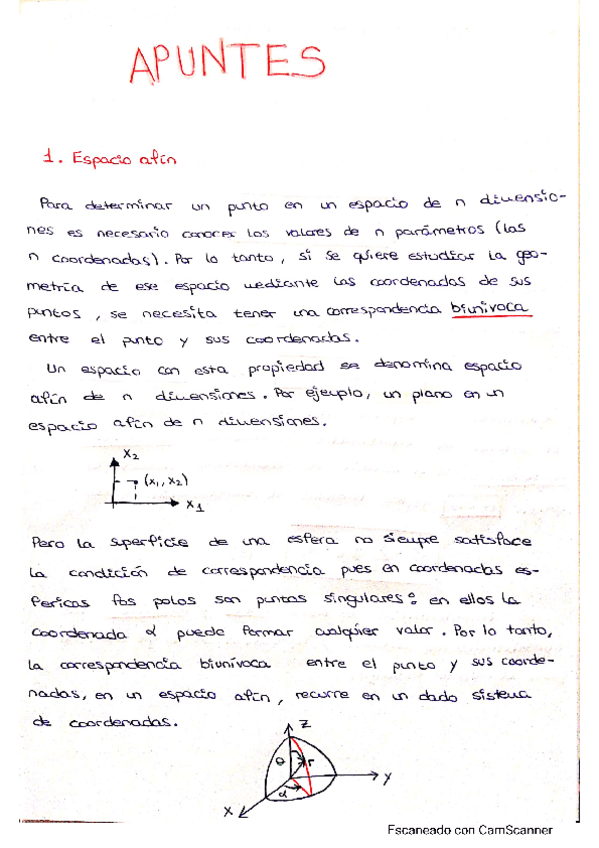 APUNTES
1. Espacio afín
Para determinar un punto en un espacio de n dimensio-
nes es necesario conocer los valores de n parámetros (las
n coordenadas). Por lo tanto, si se quiere estudiar la geo-
metría de ese espacio mediante las coordenadas de sus
puntos, se necesita tener una correspondencia biunivoca
entre el punto y sus coordenadas.
Un espacio con esta propiedad se denomina espacio
afín de n dimensiones. Por ejemplo, un plano en un
espacio afín de n dimensiones.
X2
(x1, x2)
X1
Pero la superficie de una esfera no siempre satisface
la condición de correspondencia pues en coordenadas es-
fericas los polos son puntos singulares: en ellos la
coordenada α puede formar cualquier valor. Por lo tanto,
la correspondencia biunívoca entre el punto y sus coorde-
nadas, en un espacio afín, recurre en un dado sistema
de coordenadas.
Z
θ r
Y
α
X
Escaneado con CamScanner